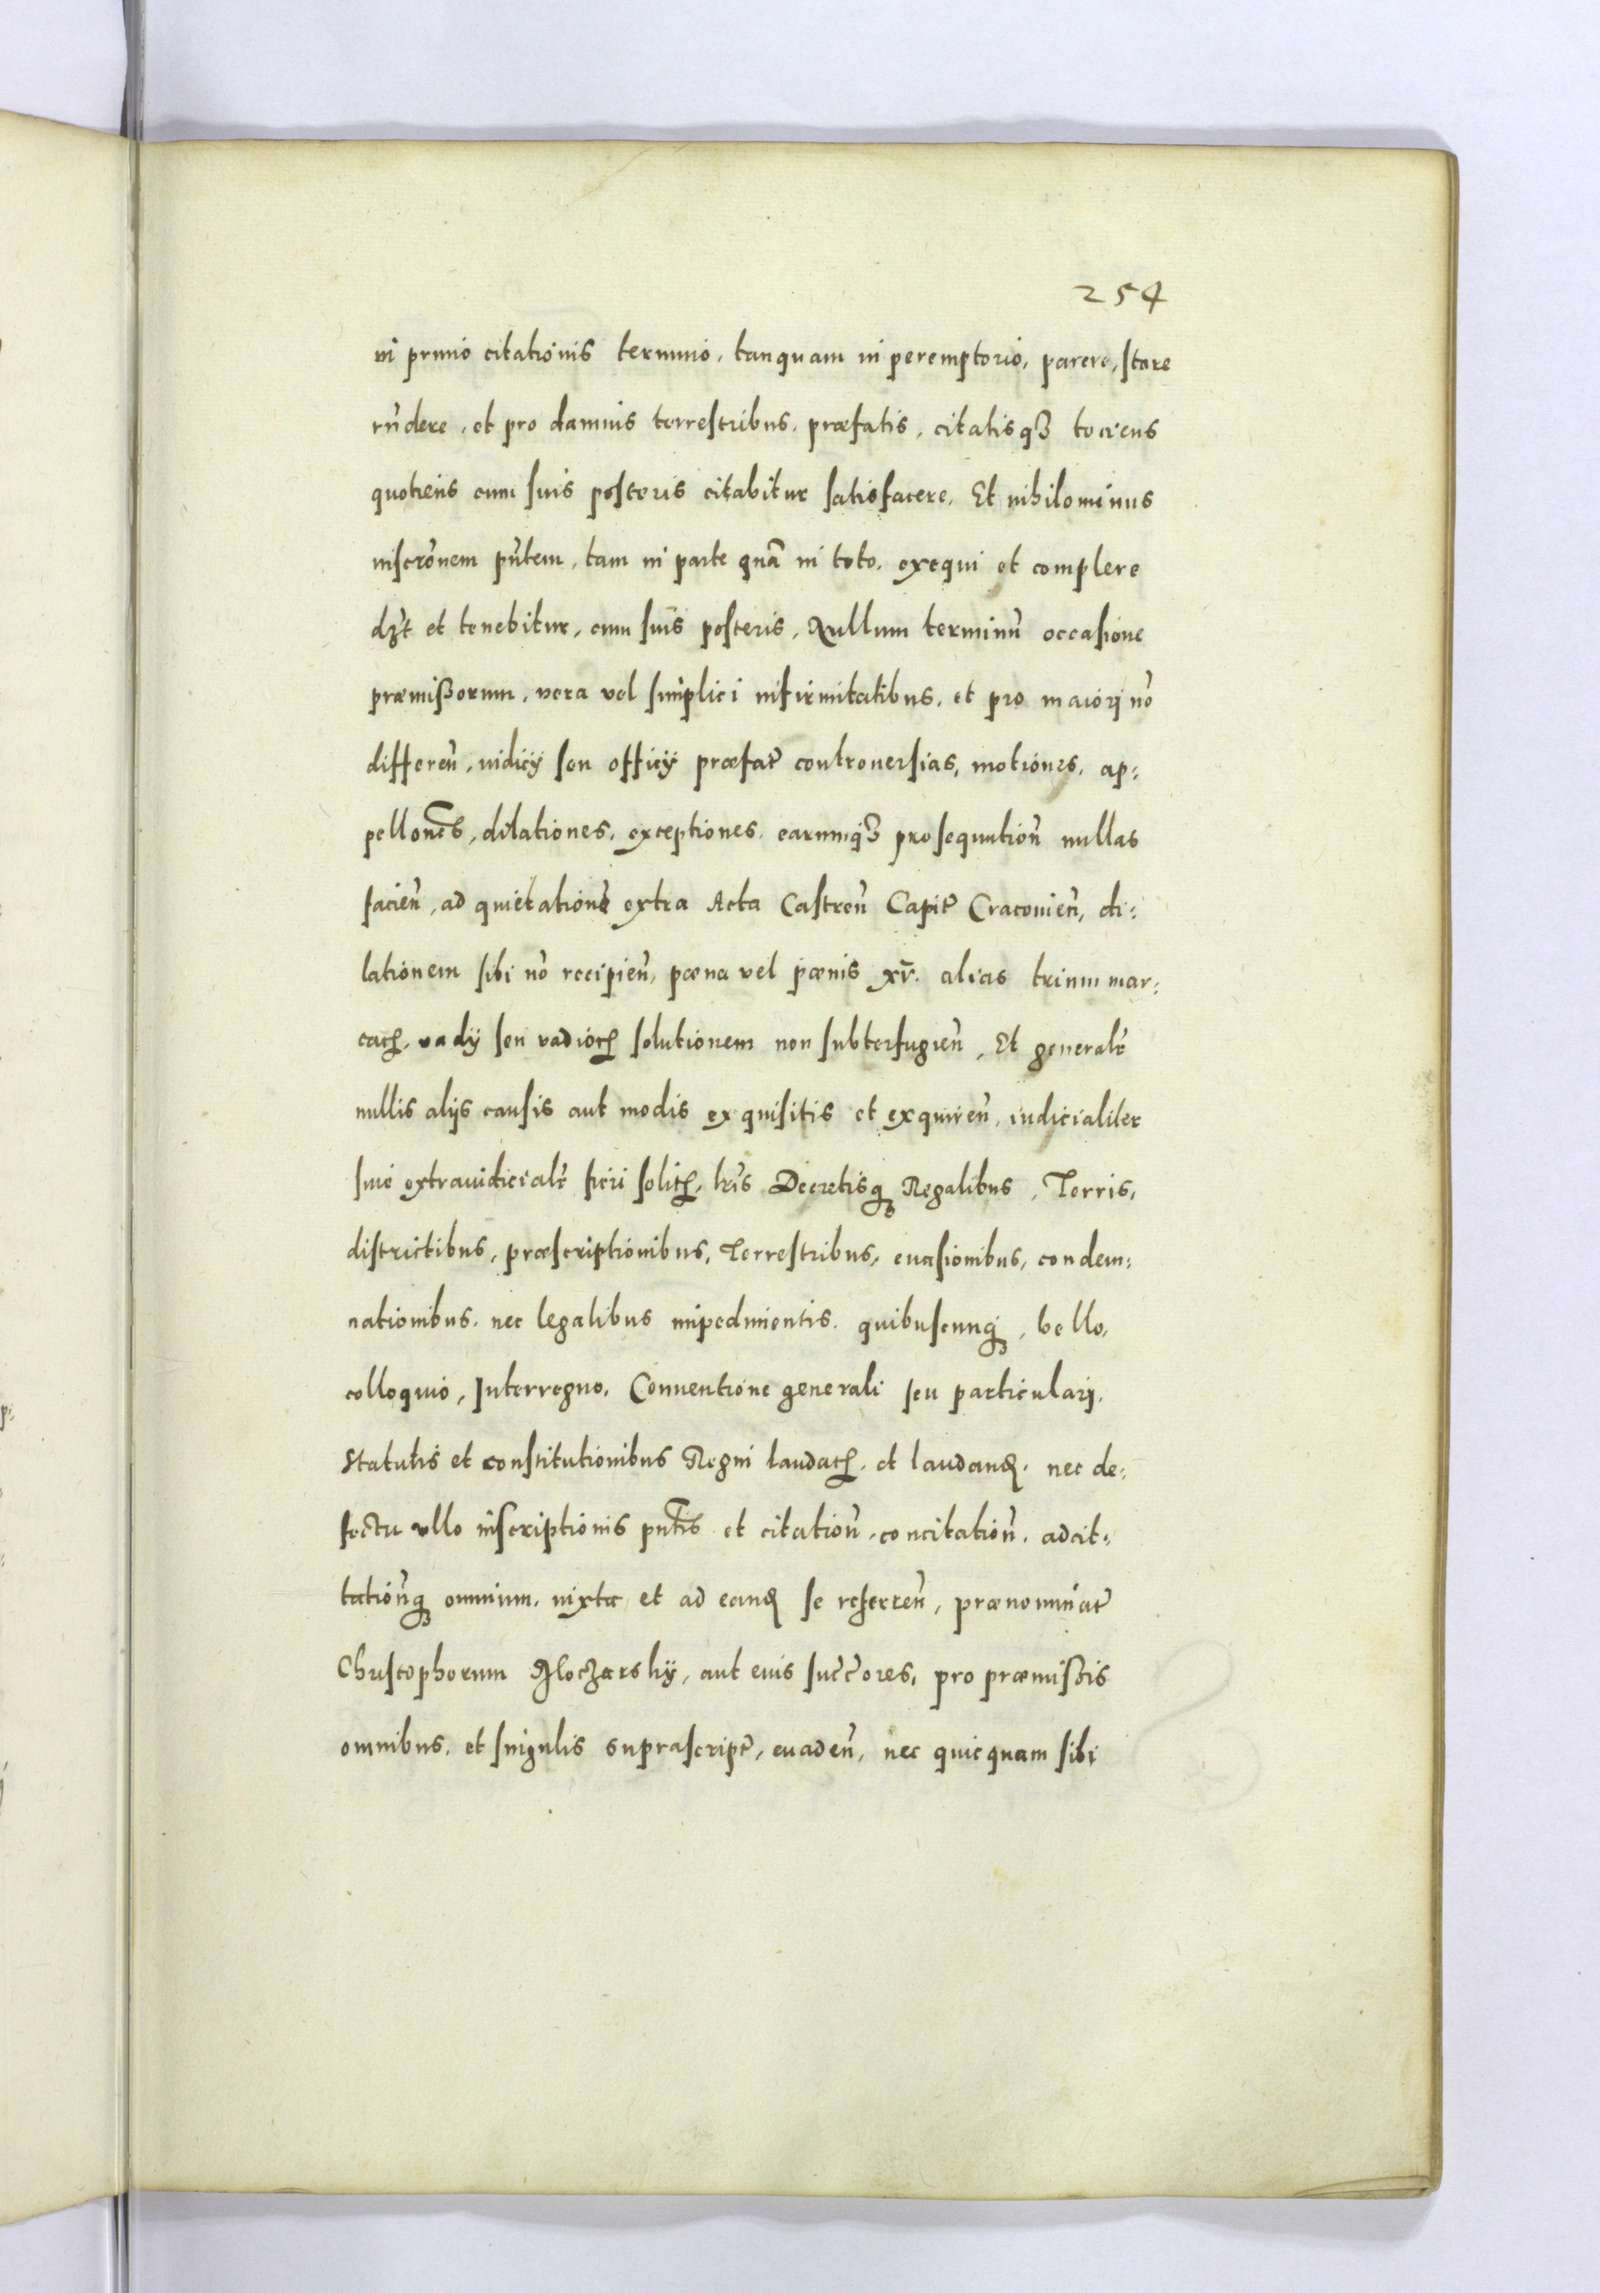 254
in primo citationis termino, tanquam in peremptorio, parere, stare
rñdere, et pro damnis terrestribus, præfatis, citatisqȝ tociens
quotiens cum suis posteris citabitur satisfacere. Et nihilominus
inscrõnem pñtem, tam in parte quã in toto, exequi et complere
dȝt et tenebitur, cum suis posteris, Nullum terminũ occasione
præmißorum, vera vel simplici infirmitatibus, et pro maiori nõ
differeñ, iudicÿ seu officÿ præfat̃ controuersias, motiones, ap:
pellões, dilationes, exceptiones, earumqȝ prosequution̄ nullas
facieñ, ad quietationẽ extra Acta Castreñ Capit̃ Cracouieñ, di:
lationem sibi nõ recipieñ, pœna vel pœnis xv. alias trium mar:
caꝝ, vadÿ seu vadioꝝ solutionem non subterfugieñ, Et generalr̃
nullis alÿs causis aut modis exquisitis et exquireñ, iudicialiter
siue extraiudicialr̃ fieri solitꝝ, lr̃is Decretisqȝ Regalibus, Terris,
districtibus, præscriptionibus, Terrestribus, euasionibus, condem:
nationibus, nec legalibus impedimentis, quibuscunqȝ, bello,
colloquio, Interregno, Conuentione generali seu particulari,
Statutis et constitutionibus Regni laudatꝝ, et laudanꝺ, nec de:
fectu vllo inscriptionis pñtis et citation̄, concitation̄, adcit:
tation̄qȝ omnium, iuxta et ad eanꝺ se referreñ, prænominat̃
Christophorum Kloczarskÿ, aut eius succ̃ores, pro præmissis
omnibus, et singulis suprascript̃, euadeñ, nec quicquam sibi